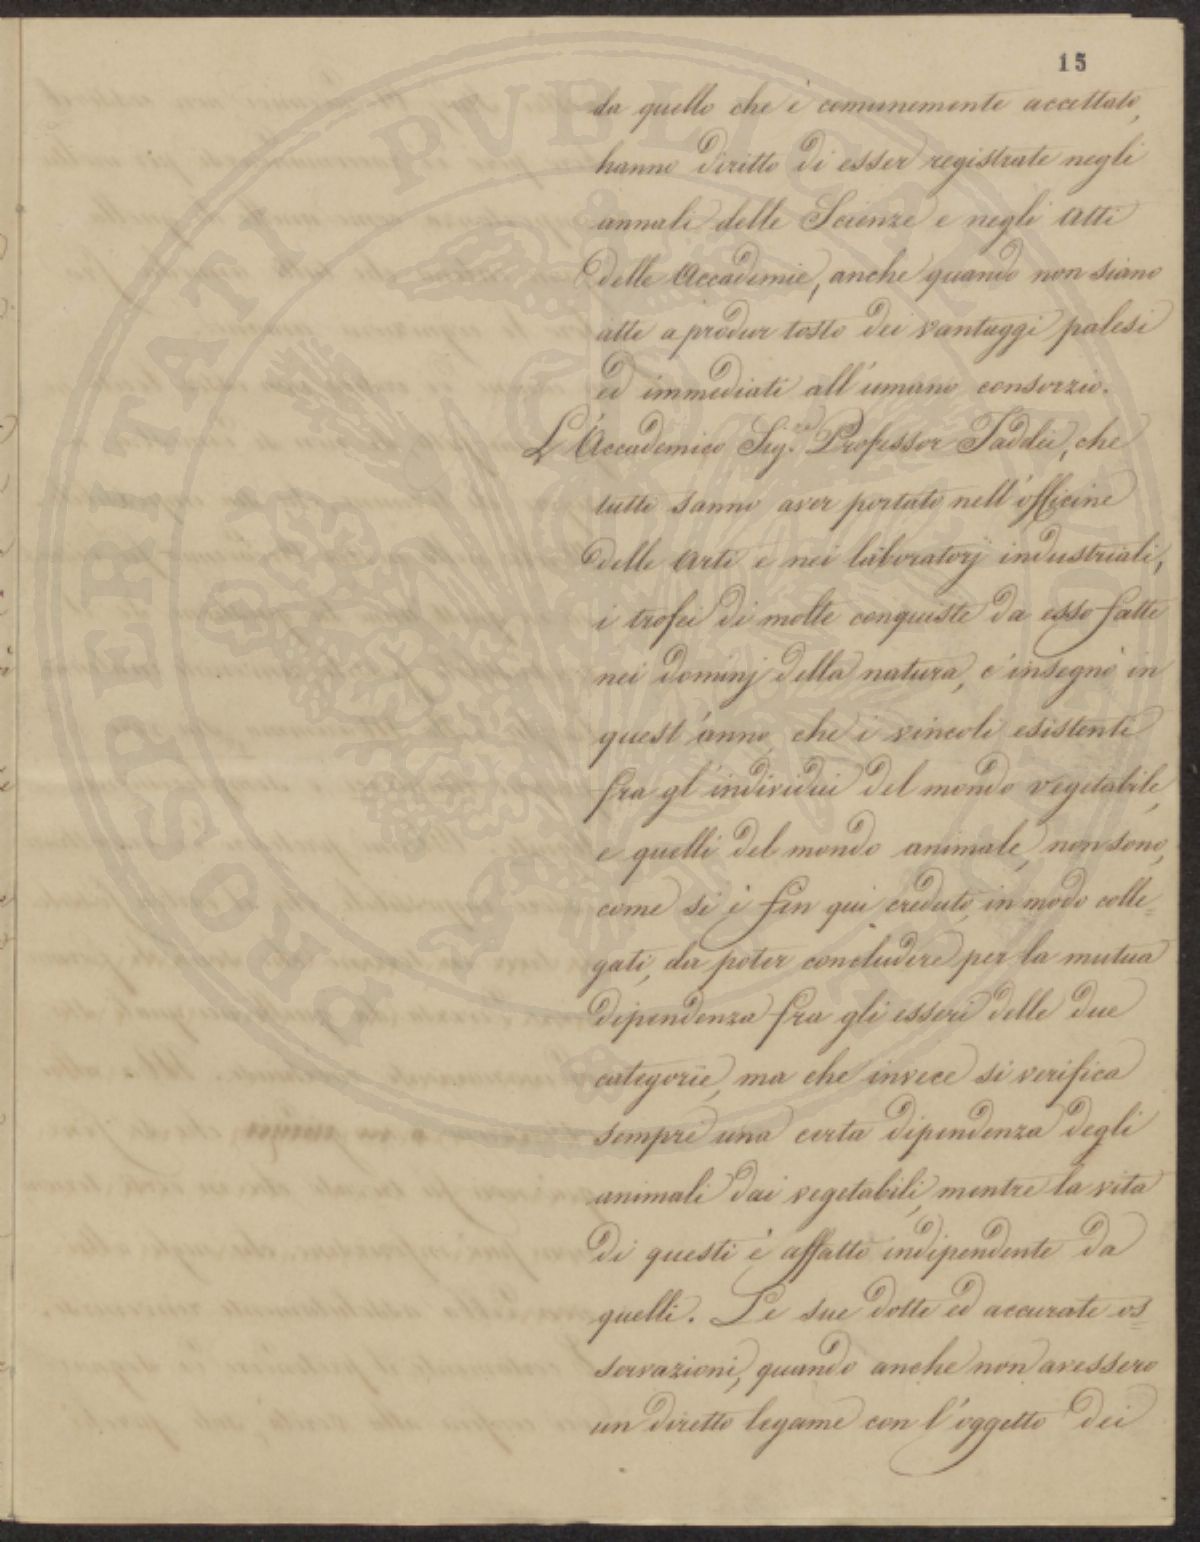 15
da quello che è comunemente accettato,
hanno diritto di esser registrate negli
annali delle Scienze e negli Atti
delle Accademie, anche quando non siano
atte a produr tosto dei vantaggi palesi
ed immediati all'umano consorzio.
L'Accademico Sig.re Professor Taddei, che
tutti sanno aver portato nell'officine
delle Arti e nei laboratorj industriali,
i trofei di molte conquiste da esso fatte
nei dominj della natura, c'insegnò in
quest'anno, che i vincoli esistenti
fra gl'individui del mondo vegetabile,
e quelli del mondo animale, non sono,
come si è fin qui creduto, in modo colle=
gati, da poter concludere per la mutua
dipendenza fra gli esseri delle due
categorie, ma che invece si verifica
sempre una certa dipendenza degli
animali dai vegetabili, mentre la vita
di questi è affatto indipendente da
quelli. Le sue dotte ed accurate os=
servazioni, quando anche non avessero
un diretto legame con l'oggetto dei
PROSPERITATI PVBLICAE